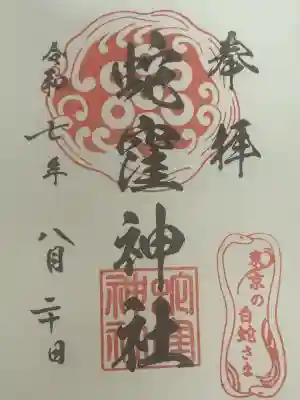 奉拝
蛇窪神社
令和七年
八月二十日
東京の
白蛇さま
蛇窪神社